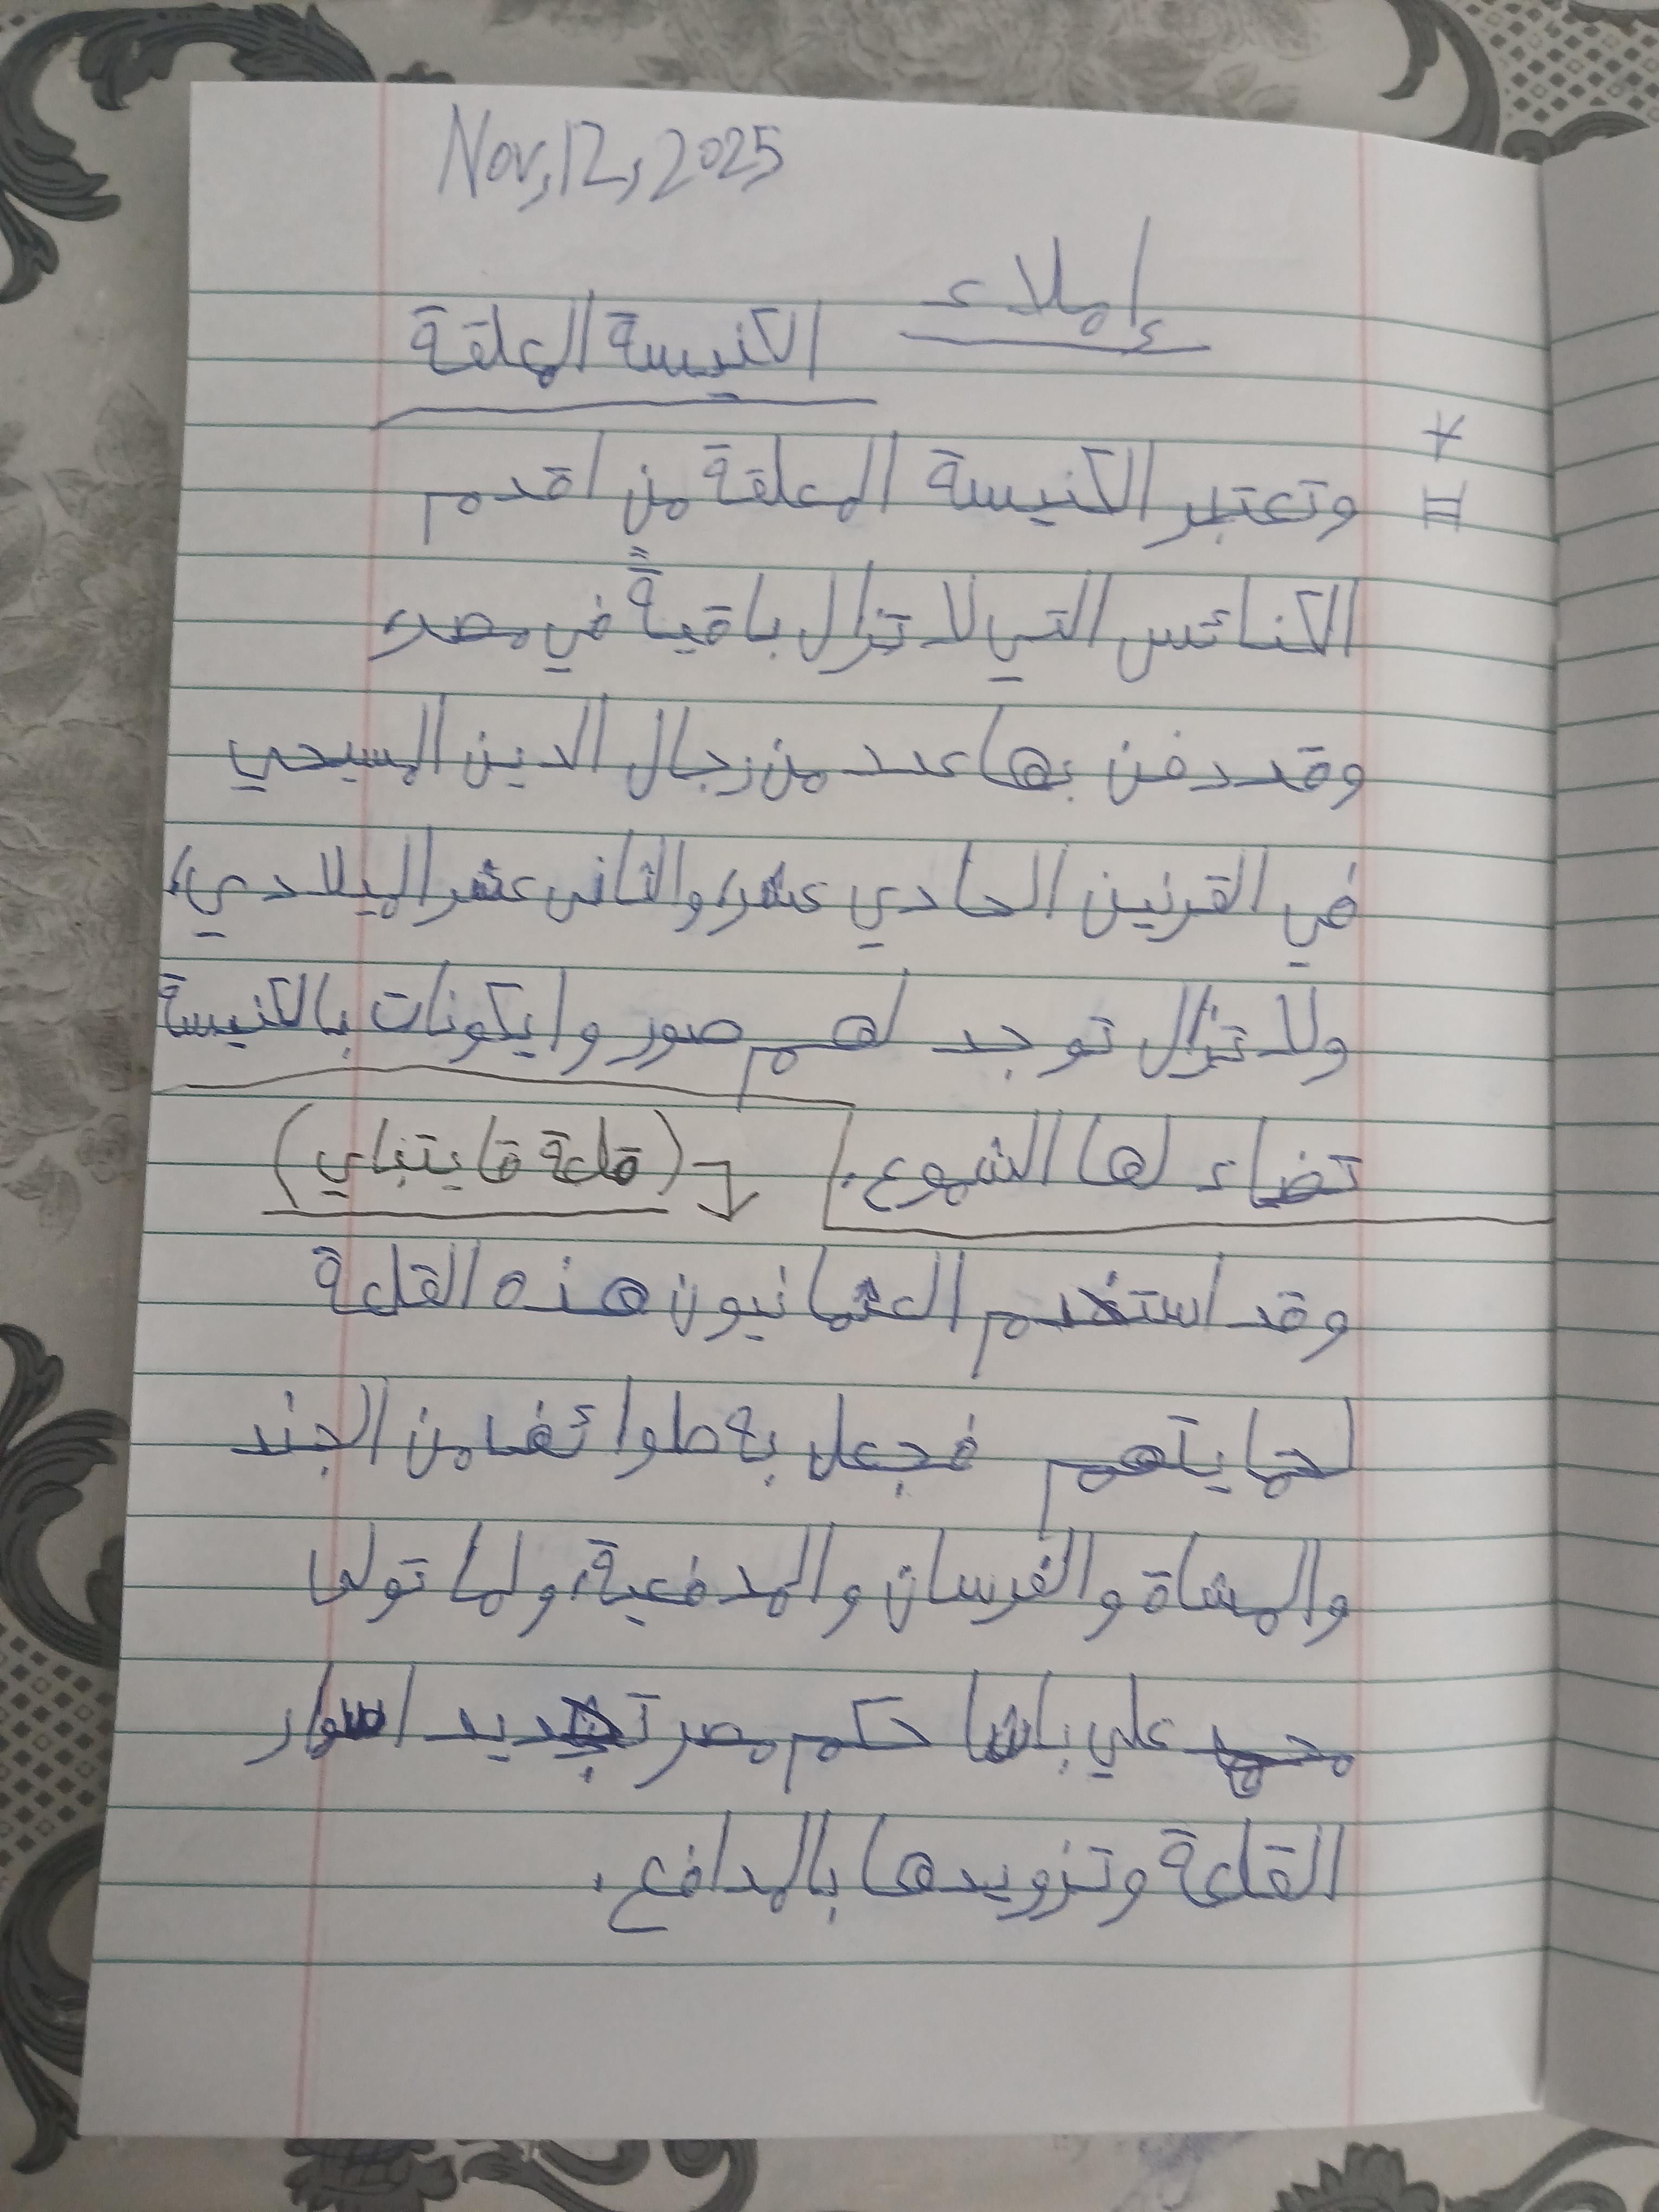 Nov,12,2025
إملاء
الكنيسة المعلقة
وتعتبر الكنيسة المعلقة من اقدم
الكنائس التي لا تزال باقيةً في مصر
وقد دفن بها عدد من رجال الدين المسيحي
في القرنين الحادي عشر، والثانى عشر الميلادي،
ولا تزال توجد لهم صور وايكونات بالكنيسة
تضاء لها الشموع.
(قلعة قايتباي)
وقد استخدم العثمانيون هذه القلعة
لحمايتهم فجعل به طوائف من الجند
والمشاة والفرسان والمدفعية، ولما تولى
محمد علي باشا حكم مصر تجديد اسوار
القلعة وتزويدها بالمدافع.